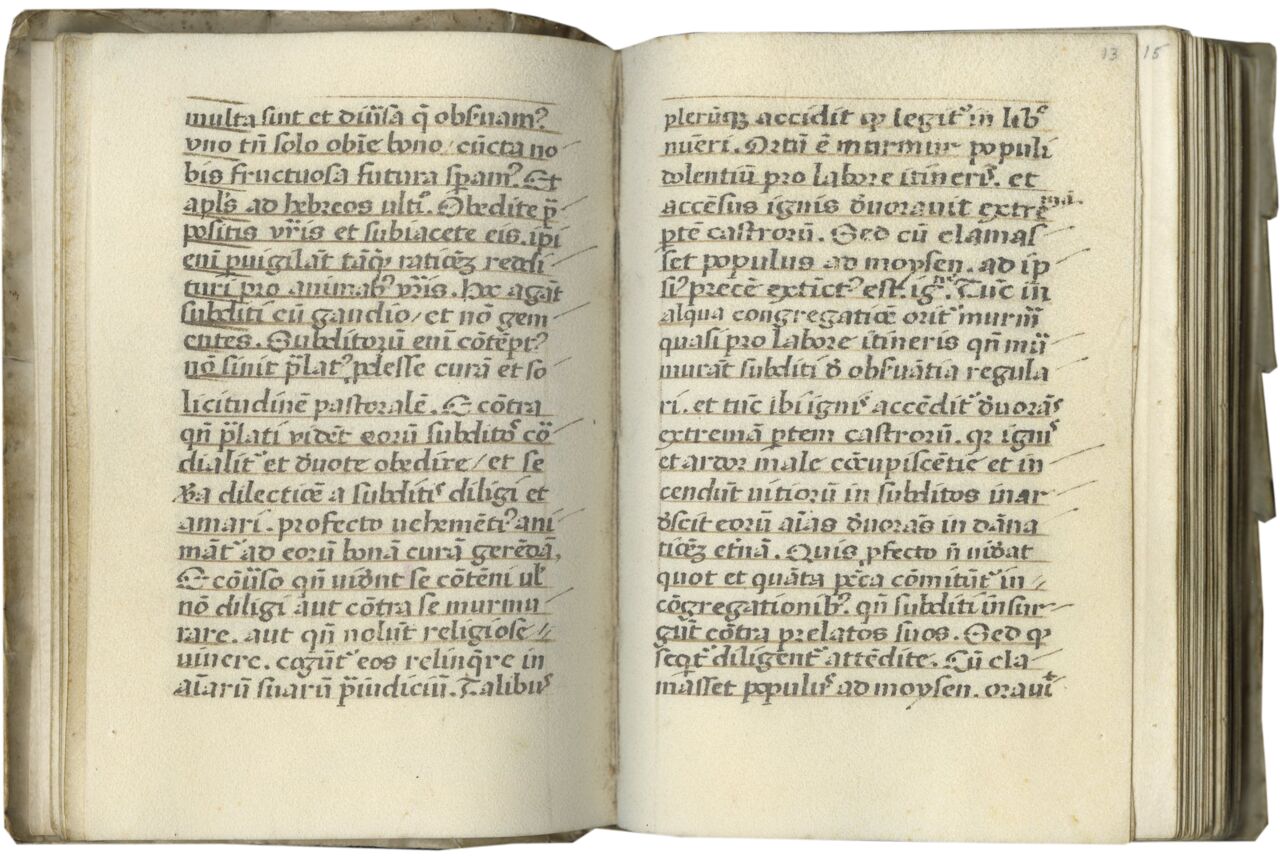 multa sint et diũsa q̃ obsꝰuam?
vno tñ solo obiẽ bono / cũcta no
bis fructuosa futura spam?. Et
apłs ad hebreos ulti᷒. Obedite p̃
positis vr̃is et subiacete eis. ipi
eni puigilãt tãq̃ raticẽ redsi
turi pro animabꝰ vr̃is. Hoc agãt
subditi cũ gaudio / et nõ gem
entes. Subditorũ eni cõtẽpt?
nõ sinit p̃lat? pdesse curã et so
licitudinẽ pastoralẽ. E cõtra
qñ p̃lati vidẽt eorũ subditos cõ
dialit᷒ et deuote obedire / et se
dilectiõe a subditis diligi et
amari. profecto uehemẽt? ani
mãt᷒ ad eorũ bonã curã gerẽdã.
E cõũso qñ uidẽt se cõtẽni ul̃
nõ diligi aut cõtra se murmu
rare. aut qñ nolũt religiose //
uiuere. cogũt eos relinq̃re in
aĩarũ suarũ p̃iudiciũ. Talibus
plerũqȝ accidit qp legit᷒ in lib?
nũeri. Ortũ ẽ murmur populi
dolentiũ pro labore itineris. et
accẽsus ignis deuorauit extrema
ptẽ castrorũ. Sed cũ clamas
set populus ad moysen. ad ip
si? precẽ extict? est ig?. Tũc in
alqua congregatiõe orit᷒ murm̃
quasi pro labore itineris qñ mũ
murãt subditi de obsuãtia regula
ri. et tũc ibi ignis accẽdit᷒ deuorãs
extremã ptem castrorũ. qr ignis
et ardor male cõcupiscẽtie et in
cendũt uitiorũ in subditos inar
descit eorũ aĩas deuorãs in dãna
ticẽ et̃nã. Quis pfecto ñ uideat
quot et quãta pc̃ca cõmitũt᷒ in //
cõgregationibꝰ. qñ subditi insur
gũt cõtra prelatos suos. Sed qp
seqt᷒ diligent᷒ attẽdite. Cũ cla
masset populus ad moysen. orauit
13
15